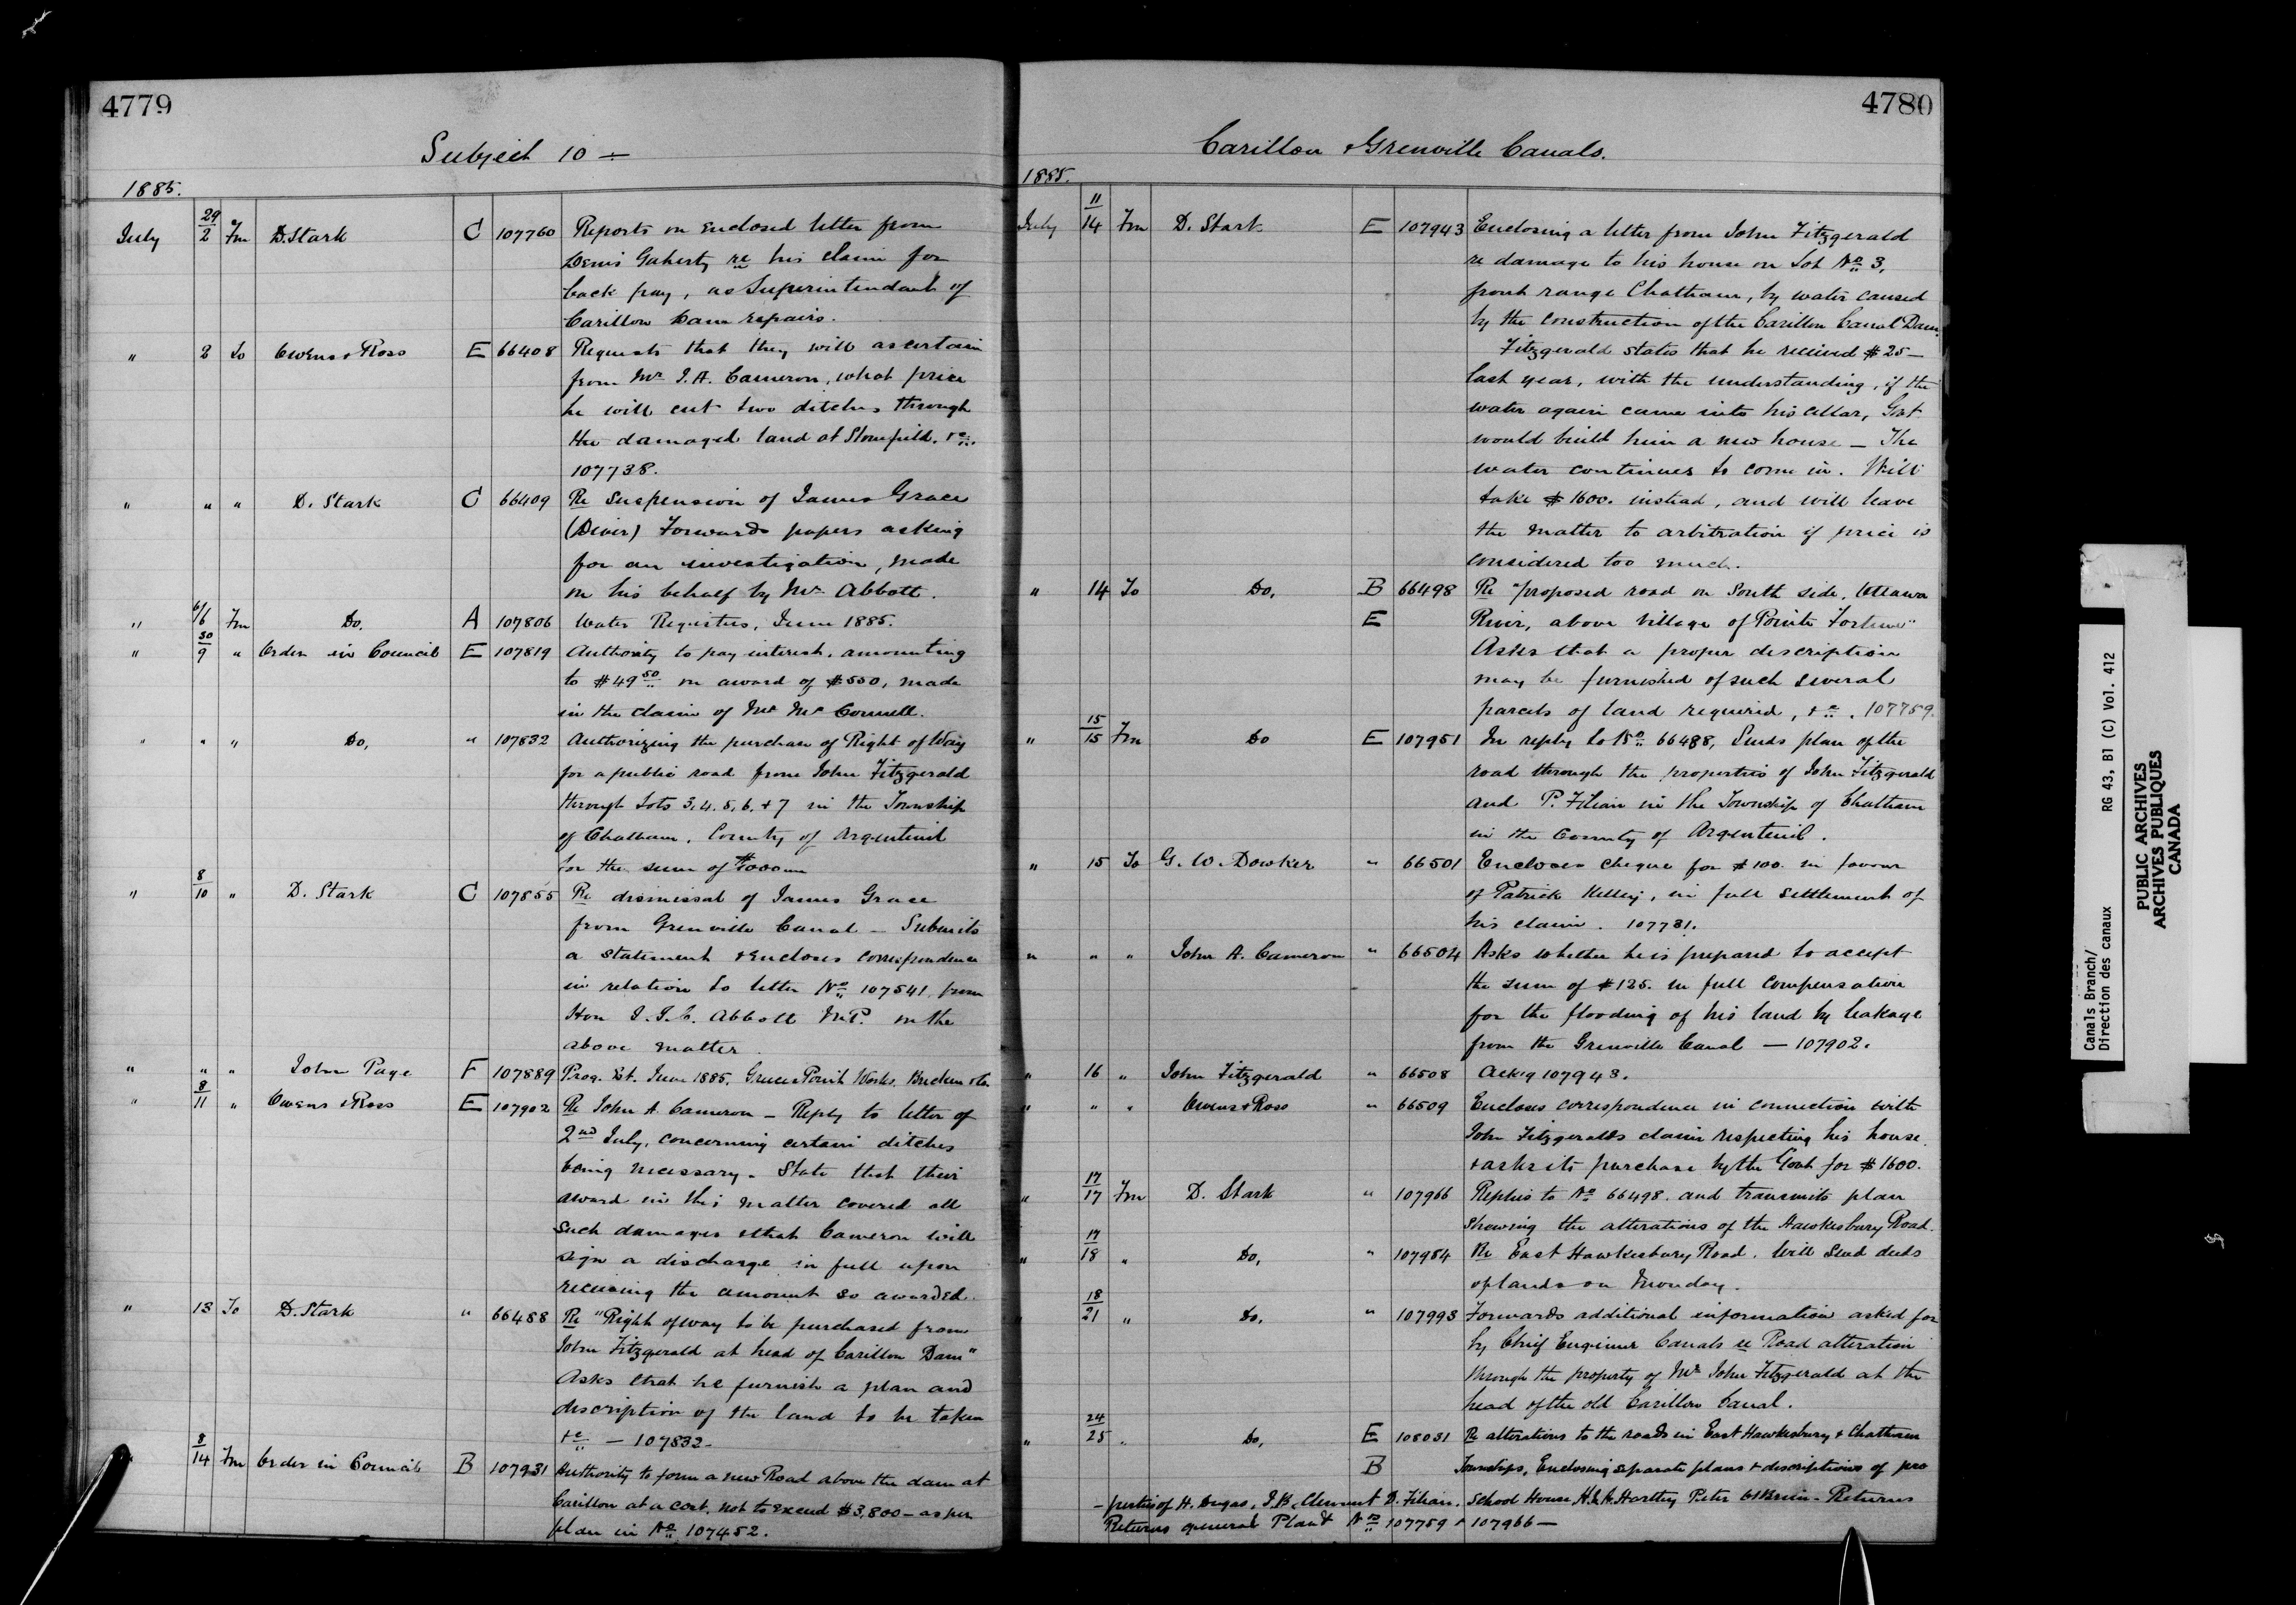 4779
Subject 10 —
1885.
July 29/2 Fm D. Stark C 107760 Reports on enclosed letter from
Denis Gaherty re his claim for
back pay, as Superintendant of
Carillon Dam repairs.
" 2 To Owens & Ross E 66408 Requests that they will ascertain
from Mr J. A. Cameron, what price
he will cut two ditches through
the damaged land at Stonefield. &c.
107738.
" " " D. Stark C 66409 Re suspension of James Grace
(Diver) Forwards papers asking
for an investigation, made
on his behalf by Mr Abbott.
" 6/6 Fm Do. A 107806 Water Registers, June 1885.
" 30/9 " Order in Council E 107819 Authority to pay interest, amounting
to $49 50 on award of $550, made
in the claim of Mr McConnell.
" " " Do, " 107832 Authorizing the purchase of Right of Way
for a public road from John Fitzgerald
through Lots 3, 4, 5, 6, & 7 in the Township
of Chatham, County of Argenteuil
for the sum of
" 8/10 " D. Stark C 107855 Re dismissal of James Grace
from Grenville Canal — Submits
a statement & encloses correspondence
in relation to letter No 107541 from
Hon J. J. C. Abbott M.P. in the
above matter.
" " " John Page F 107889 Prog. Est. June 1885. Greece's Point Works.
" 8/11 " Owens & Ross E 107902 Re John A. Cameron — Reply to letter of
2nd July, concerning certain ditches
being necessary. State that their
award in this matter covered all
such damages & that Cameron will
sign a discharge in full upon
receiving the amount so awarded.
" 13 To D. Stark " 66488 Re "Right of way to be purchased from
John Fitzgerald at head of Carillon Dam"
Asks that he furnish a plan and
description of the land to be taken
&c — 107832.
" 8/14 Fm Order in Council B 107931 Authority to form a new Road above the dam at
Carillon at a cost, not to exceed $3,800 — as per
plan in No 107452.
4780
Carillon & Grenville Canals.
1885.
July 11/14 Fm D. Stark E 107943 Enclosing a letter from John Fitzgerald
re damage to his house on Lot No 3,
front range Chatham, by water caused
by the construction of the Carillon Canal Dam.
Fitzgerald states that he received $25 —
last year, with the understanding, if the
water again came into his cellar, Govt
would build him a new house — The
water continues to come in. Will
take $1600. instead, and will leave
the matter to arbitration if price is
considered too much.
" 14 To Do, B 66498 Re "proposed road on South side, Ottawa
E River, above village of Pointe Fortune"
Asks that a proper description
may be furnished of such several
parcels of land required, &c. 107759.
" 15/15 Fm Do E 107951 In reply to No 66488, Sends plan of the
road through the properties of John Fitzgerald
and P. Filian in the Township of Chatham
in the County of Argenteuil.
" 15 To G. W. Dowker " 66501 Encloses cheque for $100. in favour
of Patrick Kelley, in full settlement of
his claim. 107731.
" " " John A. Cameron " 66504 Asks whether he is prepared to accept
the sum of $125. in full compensation
for the flooding of his land by leakage
from the Grenville Canal — 107902.
" 16 " John Fitzgerald " 66508 Ackg 107943.
" " " Owens & Ross " 66509 Encloses correspondence in connection with
John Fitzgeralds claim respecting his house
& asks its purchase by the Govt for $1600.
" 17/17 Fm D. Stark " 107966 Replies to No 66498. and transmits plan
shewing the alterations of the Hawkesbury Road.
" 17/18 " Do, " 107984 Re East Hawkesbury Road. Will send deeds
of lands on Monday.
" 18/21 " Do, " 107993 Forwards additional information asked for
by Chief Engineer Canals re Road alteration
through the property of Mr John Fitzgerald at the
head of the old Carillon Canal.
" 24/25 " Do, E 108031 Re alterations to the roads in East Hawkesbury & Chatham
B Townships, Enclosing separate plans & descriptions of pro
- perties of H. Dugas, J. B. Clement D. Filian, School House Hartley Peter O'Brien - Returns
Returns general Plan & Nos 107759 & 107966 —
Canals Branch/
Direction des canaux
RG 43, B1 (C) Vol. 412
PUBLIC ARCHIVES
ARCHIVES PUBLIQUES
CANADA